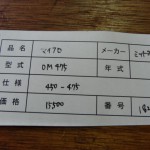 品名 マイクロ メーカー ミツトヨ
型式 OM 475 年式
仕様 450-475
価格 15500 番号